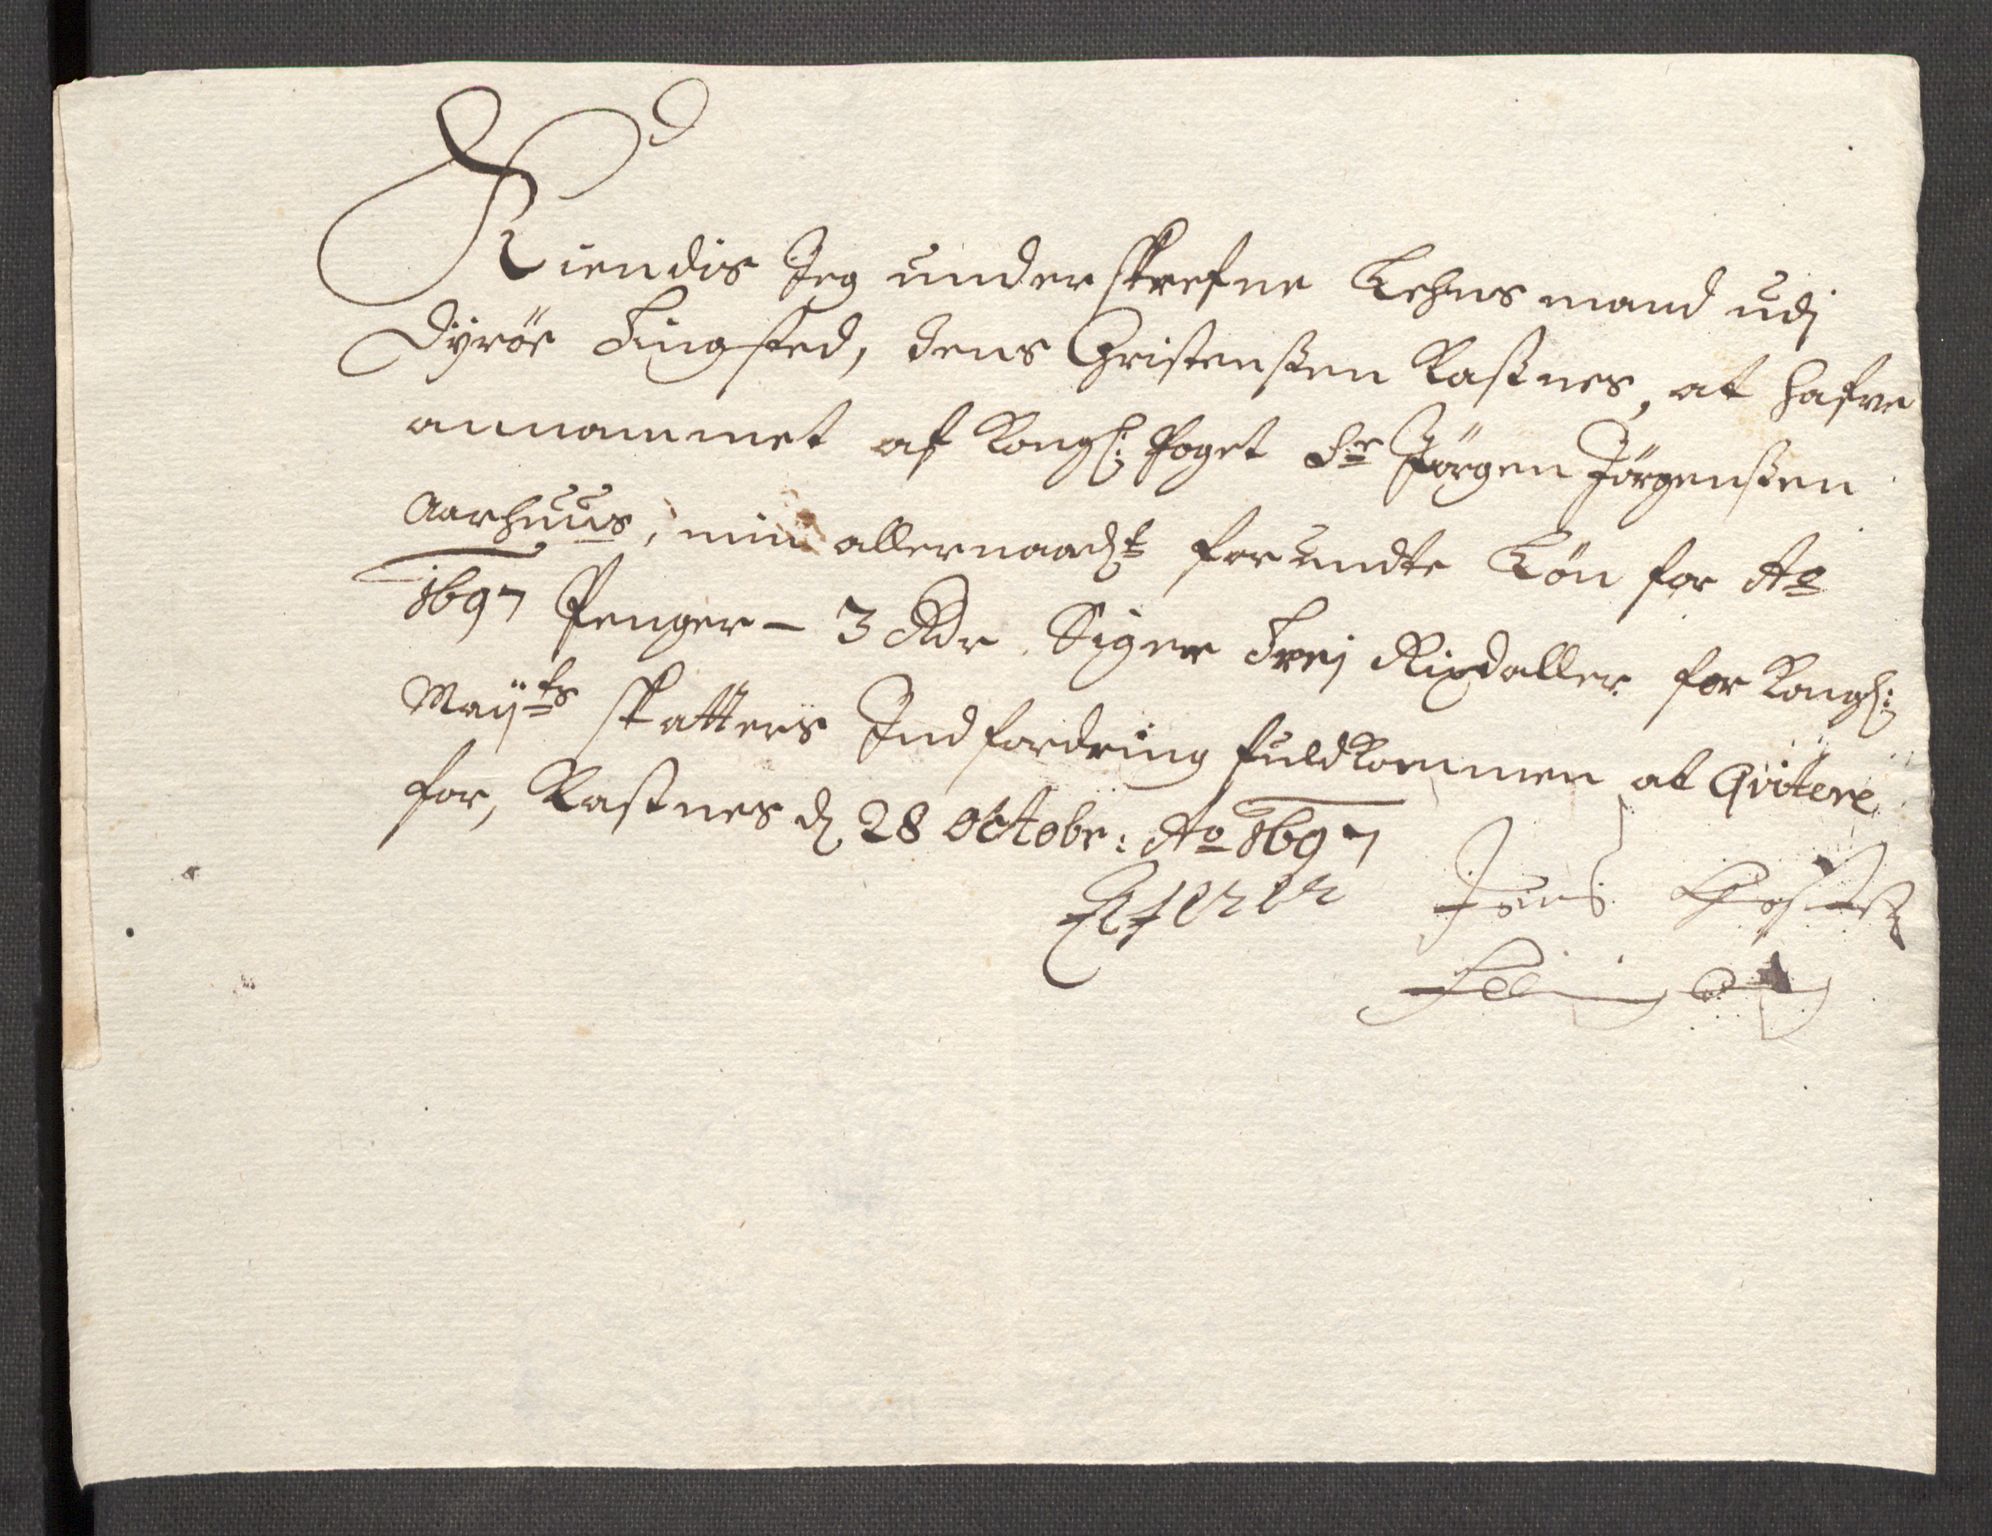 Kiendis Jeg underskrefne Lehnsmand udj
Dyröe Tingsted, Jens Christenßen Kastnes, at hafve
annammet af Kongl: Foget Sr Jörgen Jörgenßen
Aarhuus, min allernaadst forundte Lön for Ao
1697 Penger – 3 Rdr. Siger Trej Rixdaller for Kongl:
Mayts skatters Indfordring fuldkommen at Qvitere
for, Kastnes d 28 Octobr: Ao 1697
Jens